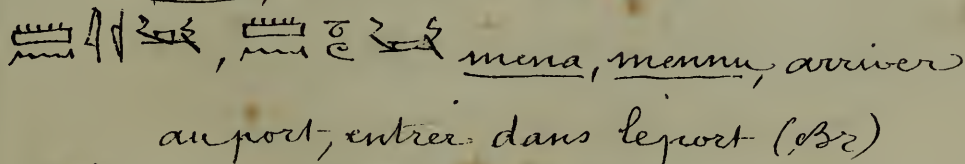 mena, mennu, arriver
au port, entrer dans le port (Br)